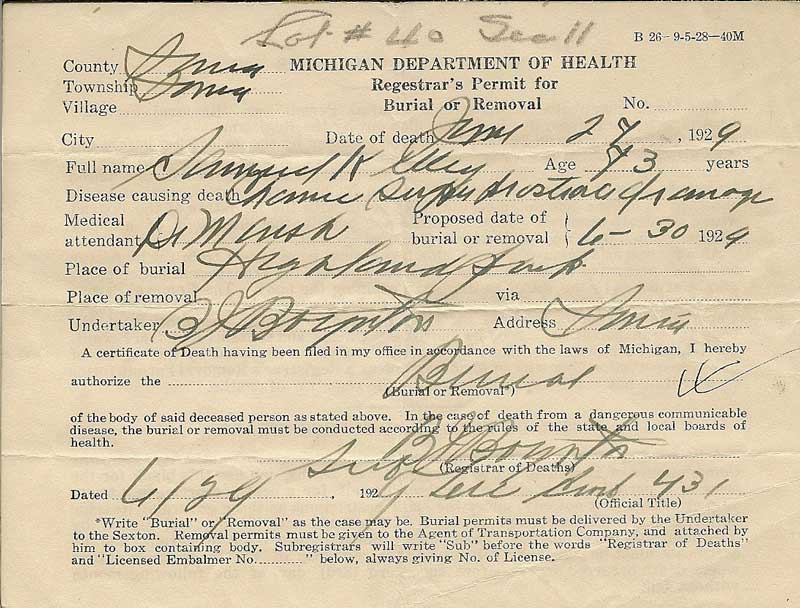 Lot # 40 Sec 11
B 26—9-5-28—40M
County Ionia MICHIGAN DEPARTMENT OF HEALTH
Township Ionia Regestrar's Permit for
Village Burial or Removal No.
City Date of death June 27, 1929
Full name Samuel K Age 73 years
Disease causing death
Medical Proposed date of
attendant Dr Marsh burial or removal 6-30 1929
Place of burial Highland Park
Place of removal via
Undertaker B J Boynton Address Ionia
A certificate of Death having been filed in my office in accordance with the laws of Michigan, I hereby
authorize the Burial
(Burial or Removal*)
of the body of said deceased person as stated above. In the case of death from a dangerous communicable
disease, the burial or removal must be conducted according to the rules of the state and local boards of
health.
Sub B J Boynton
(Registrar of Deaths)
Dated 6/29, 192 431
(Official Title)
*Write "Burial" or "Removal" as the case may be. Burial permits must be delivered by the Undertaker
to the Sexton. Removal permits must be given to the Agent of Transportation Company, and attached by
him to box containing body. Subregistrars will write "Sub" before the words "Registrar of Deaths"
and "Licensed Embalmer No.........." below, always giving No. of License.